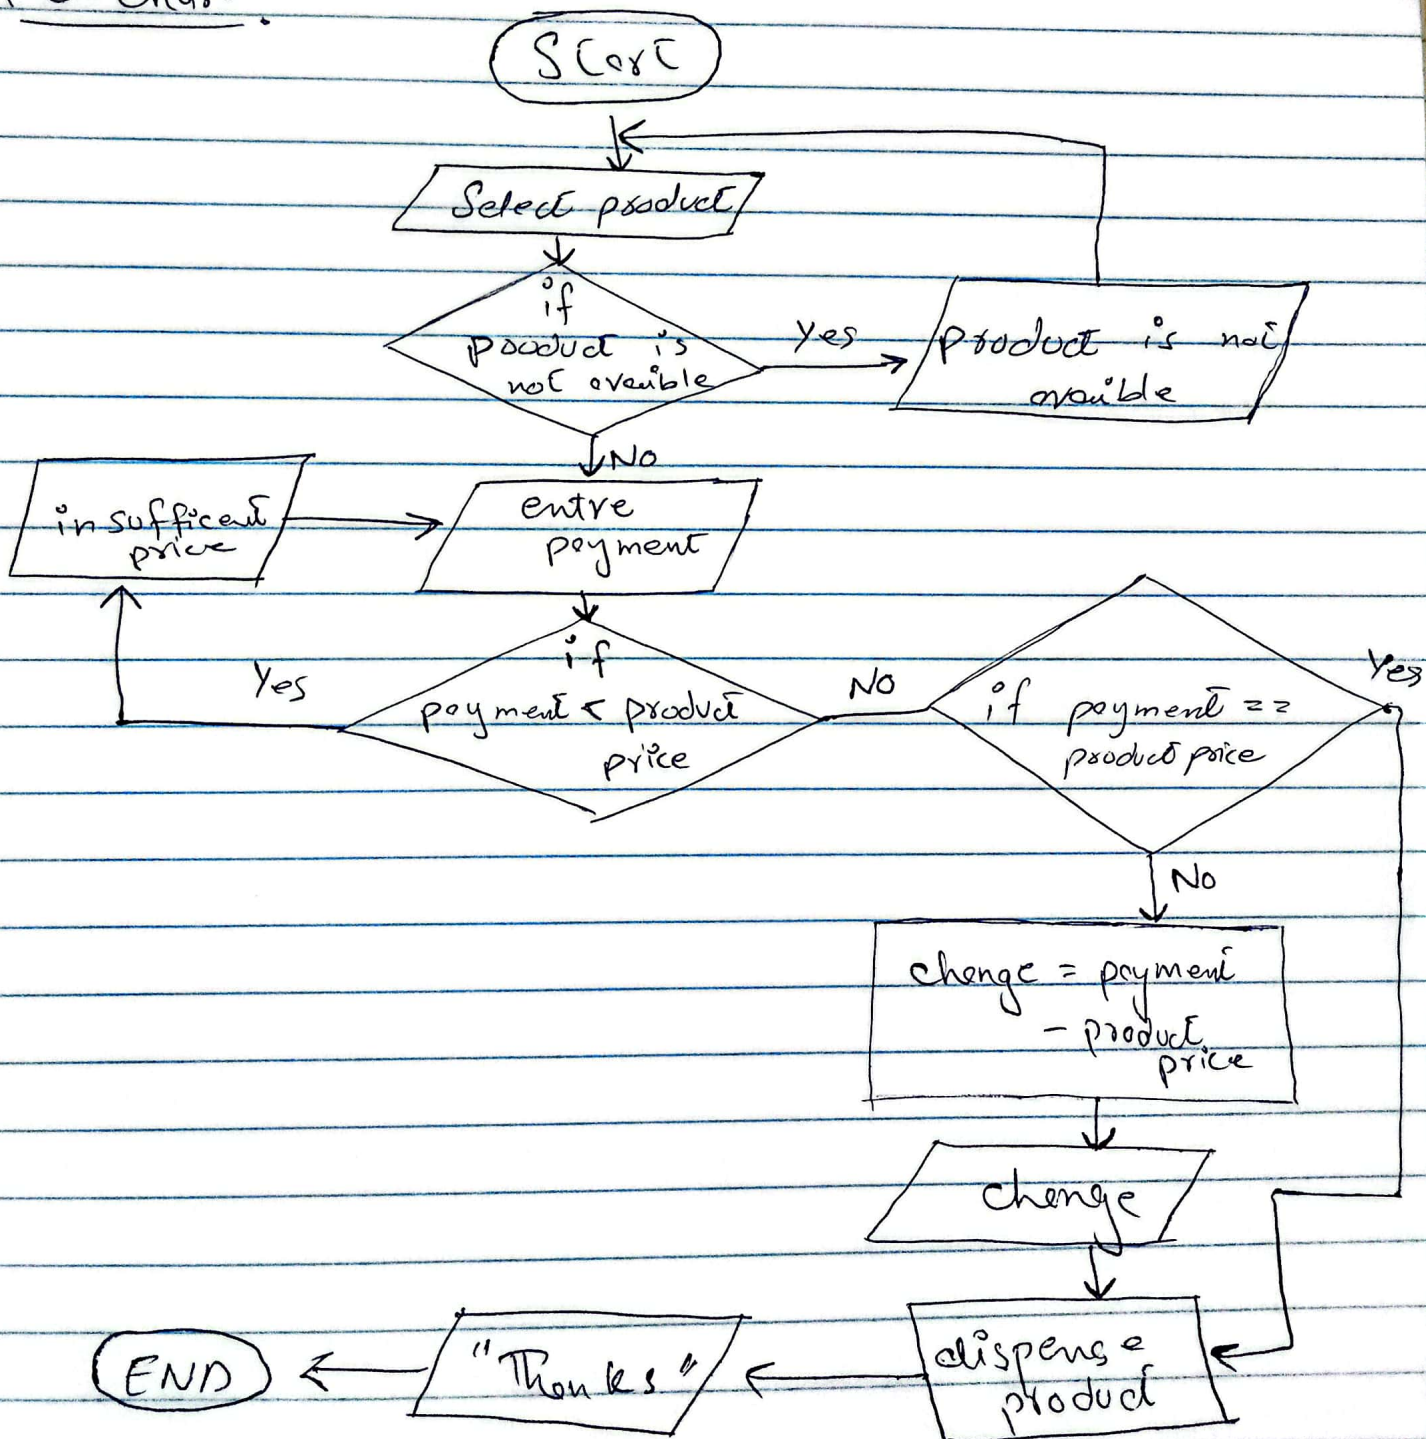 Start
Select product
if
product is
not avaible
Yes
product is not
avaible
NO
insufficent
price
entre
payment
if
payment < product
price
Yes
NO
if payment ==
product price
Yes
No
change = payment
- product
price
change
dispense
product
"Thanks"
END